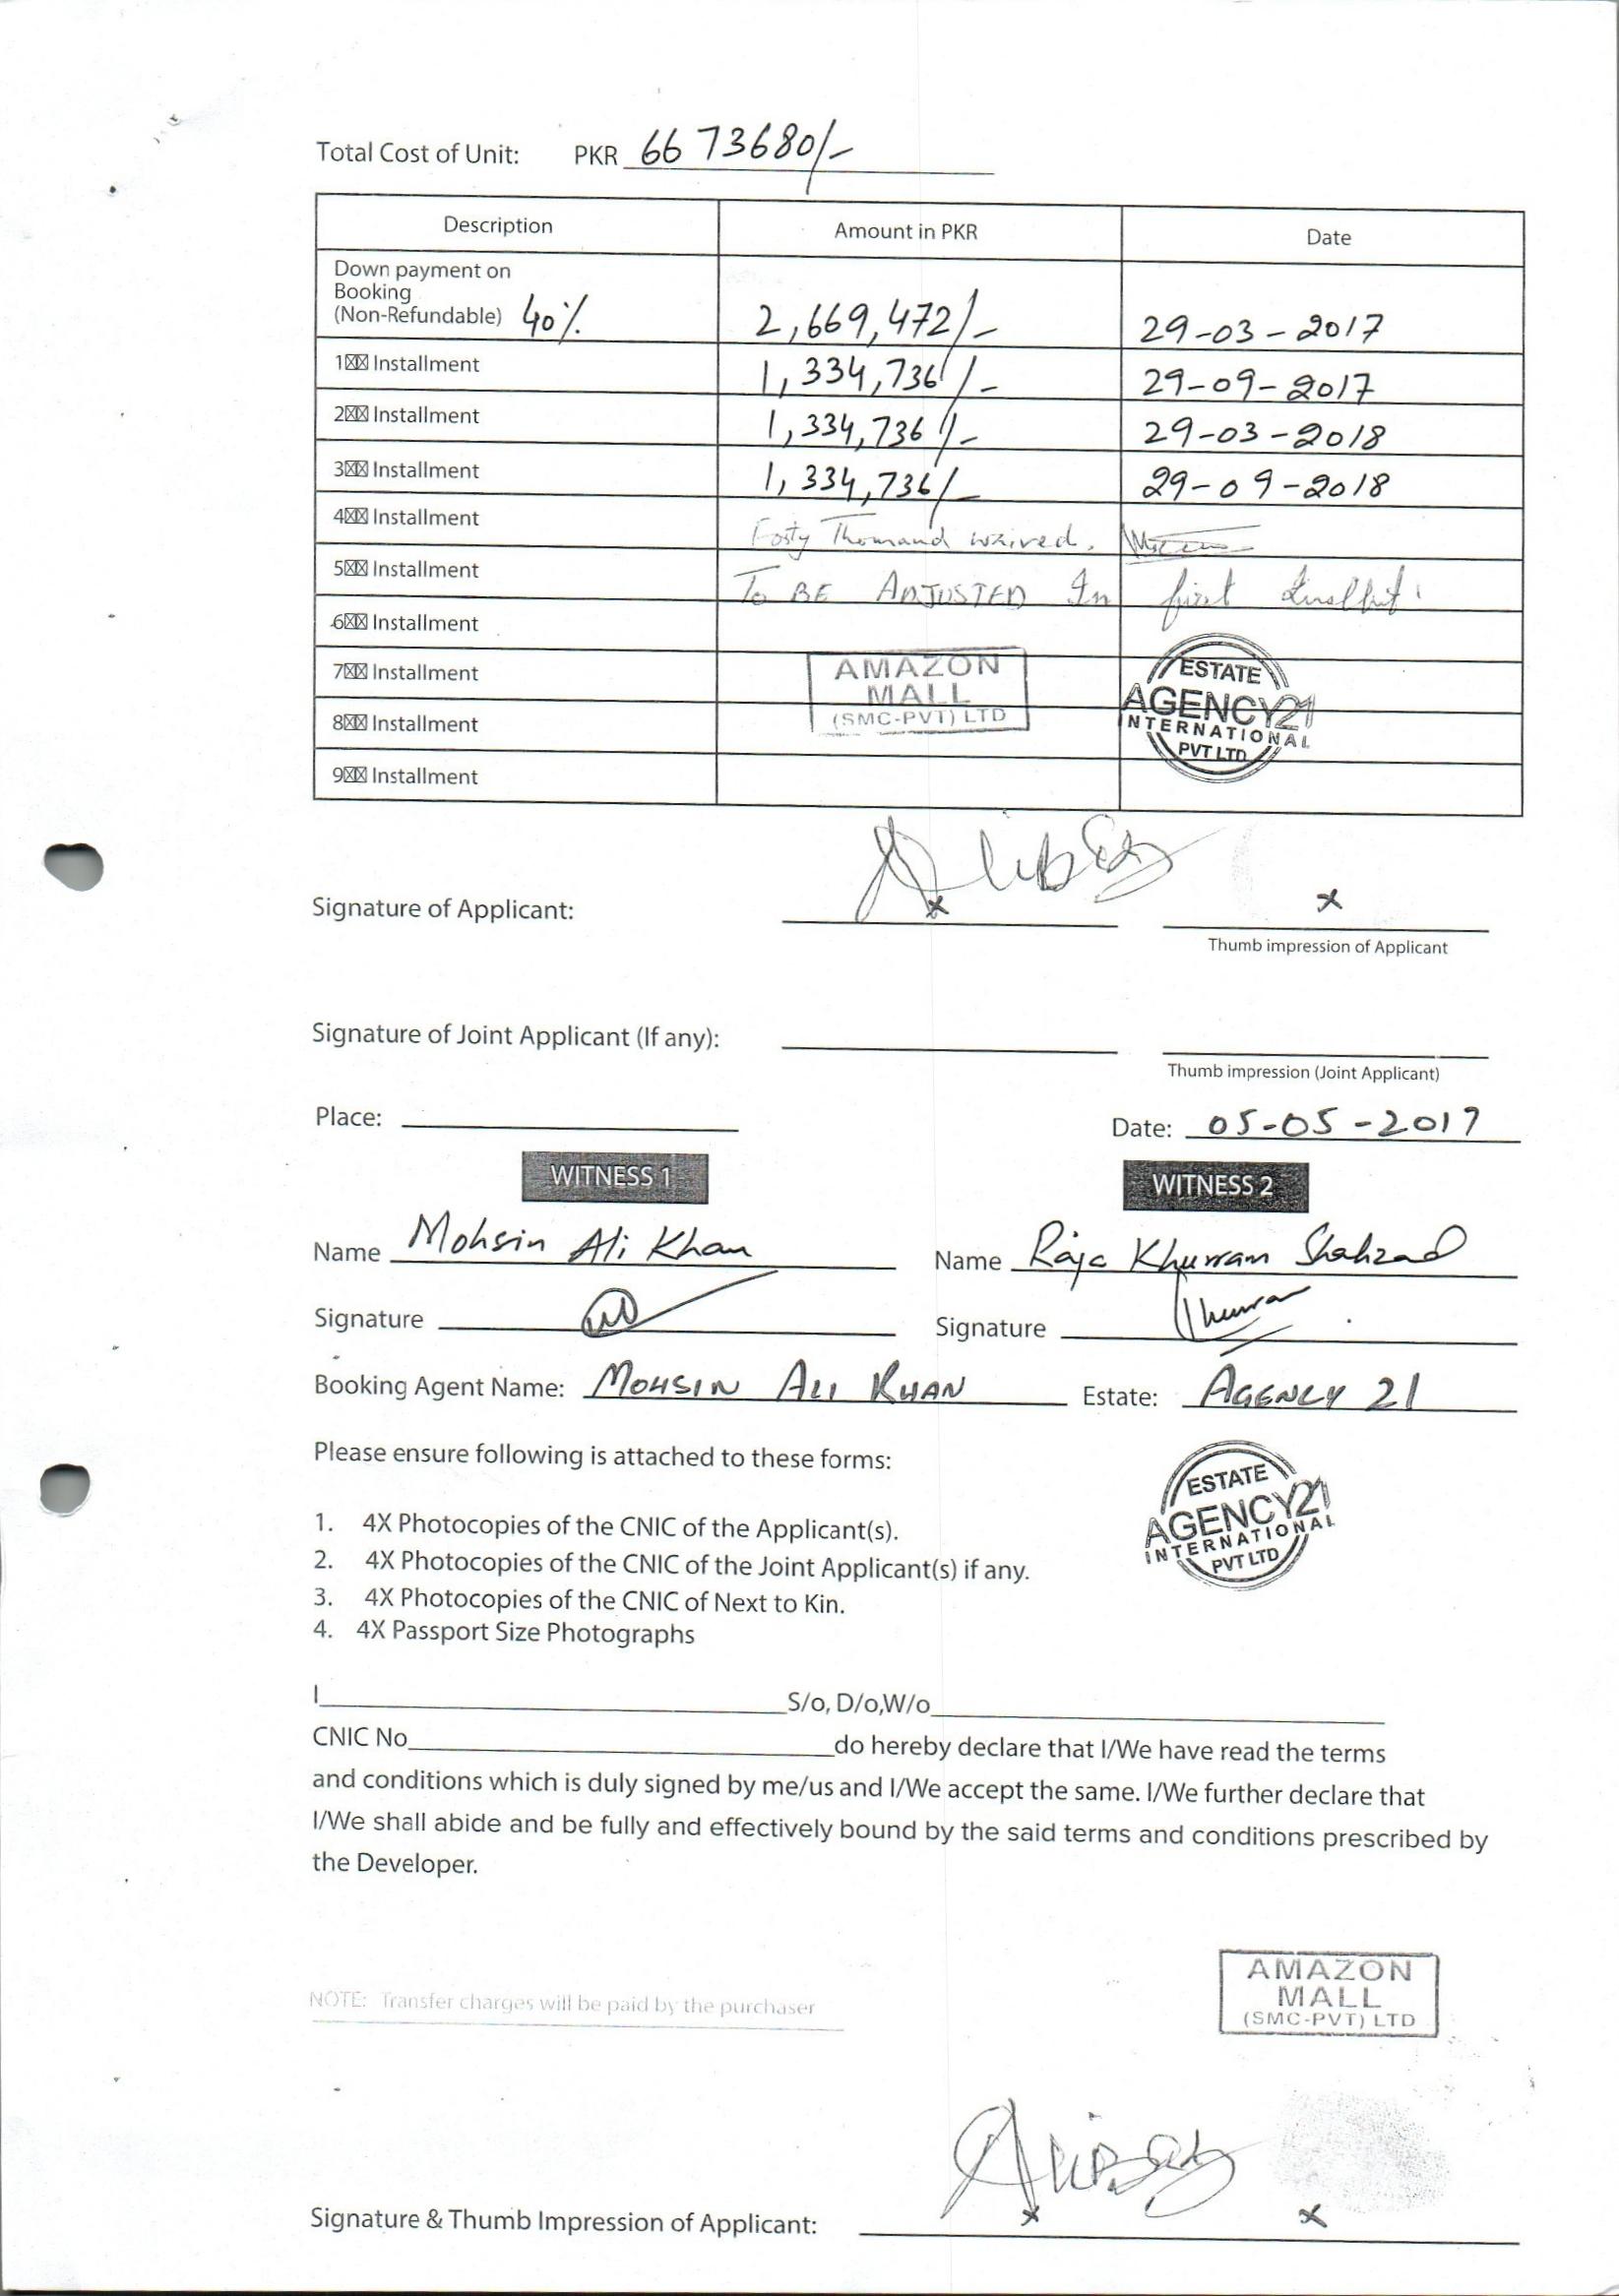 Total Cost of Unit: PKR 6673680/-
Description Amount in PKR Date
Down payment on
Booking
(Non-Refundable) 40% 2,669,472/- 29-03-2017
1☒☒ Installment 1,334,736/- 29-09-2017
2☒☒ Installment 1,334,736/- 29-03-2018
3☒☒ Installment 1,334,736/- 29-09-2018
4☒☒ Installment Forty Thousand waived.
5☒☒ Installment To BE ADJUSTED In first
6☒☒ Installment
7☒☒ Installment
8☒☒ Installment
9☒☒ Installment
AMAZON
MALL
(SMC-PVT) LTD
ESTATE
AGENCY21
INTERNATIONAL
PVT LTD
Signature of Applicant: x x
Thumb impression of Applicant
Signature of Joint Applicant (If any):
Thumb impression (Joint Applicant)
Place: Date: 05-05-2017
WITNESS 1 WITNESS 2
Name Mohsin Ali Khan Name Raja Khurram Shahzad
Signature Signature Khurram
Booking Agent Name: MOHSIN ALI KHAN Estate: AGENCY 21
Please ensure following is attached to these forms:
1. 4X Photocopies of the CNIC of the Applicant(s).
2. 4X Photocopies of the CNIC of the Joint Applicant(s) if any.
3. 4X Photocopies of the CNIC of Next to Kin.
4. 4X Passport Size Photographs
ESTATE
AGENCY21
INTERNATIONAL
PVT LTD
I S/o, D/o,W/o
CNIC No do hereby declare that I/We have read the terms
and conditions which is duly signed by me/us and I/We accept the same. I/We further declare that
I/We shall abide and be fully and effectively bound by the said terms and conditions prescribed by
the Developer.
AMAZON
MALL
(SMC-PVT) LTD
NOTE: Transfer charges will be paid by the purchaser
Signature & Thumb Impression of Applicant: x x